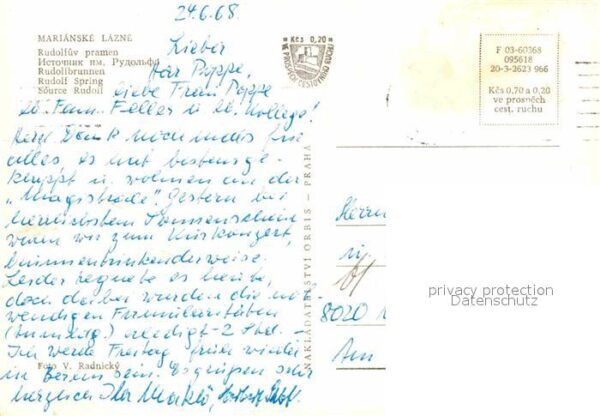 24.6.68.
MARIÁNSKÉ LÁZNĚ
Rudolfův pramen
Источник им. Рудольфа
Rudolfbrunnen
Rudolf Spring
Source Rudolf
Lieber
Herr Poppe,
liebe Frau Poppe
lb. Fam. Feller u. lb. Kollege!
Herzl. Dank nochmals für
alles es hat bestens ge-
klappt u. wohnen an der
"Magistrale". Gestern bei
herrlichstem Sonnenschein
waren wir zum Kurkonzert,
brunnentrinkenderweise.
Leider regnete es heute,
doch dabei wurden die not-
wendigen Formalitäten
erledigt - 2 Std. -
Ich werde Freitag früh wieder
in sein. Es grüßen sehr
herzlich Ihr
Foto V. Radnický
NAKLADATELSTVÍ ORBIS — PRAHA
Kčs 0,20
VE PROSPĚCH CESTOVNÍHO RUCHU
F 03-60368
095618
20-3-2623 966
Kčs 0.70 a 0.20
ve prospěch
cest. ruchu
Herrn
8020
Am
privacy protection
Datenschutz